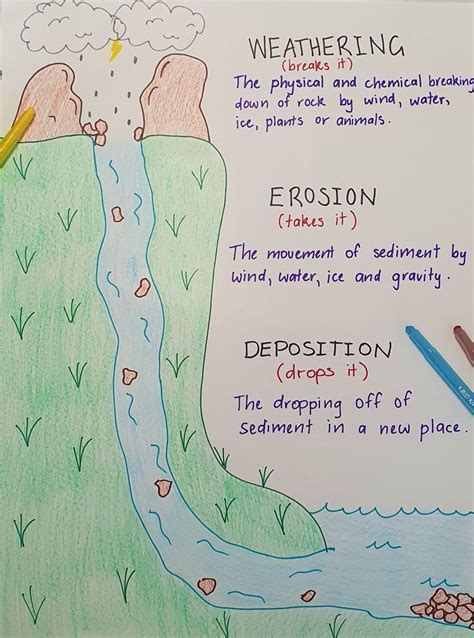 WEATHERING
(breaks it)
The physical and chemical breaking
down of rock by wind, water,
ice, plants or animals.
EROSION
(takes it)
The movement of sediment by
wind, water, ice and gravity.
DEPOSITION
(drops it)
The dropping off of
sediment in a new place.